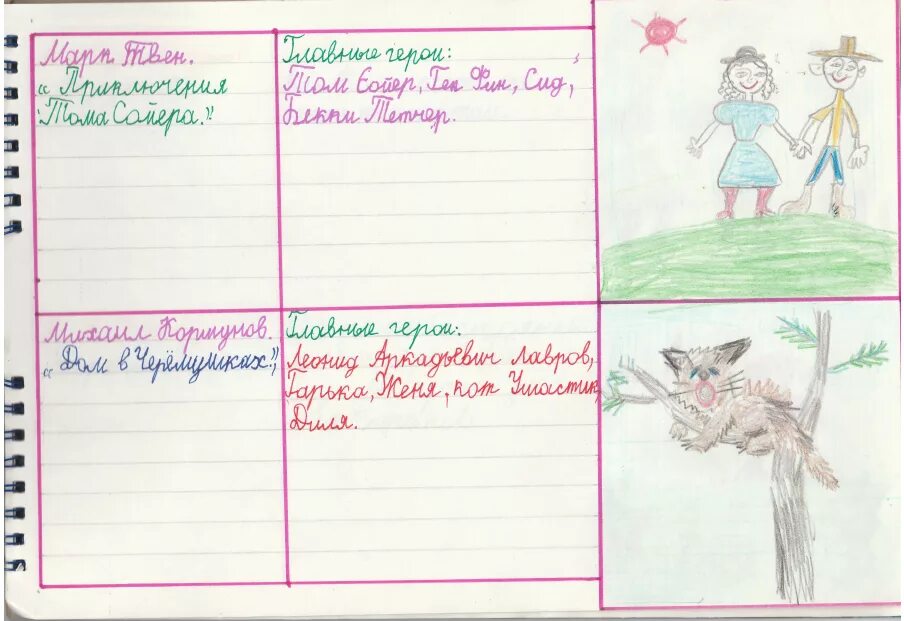 Марк Твен.
«Приключения
Тома Сойера.»
Главные герои:
Том Сойер, Гек Фин, Сид,
Бекки Тетчер.
Михаил Коршунов.
«Дом в Черёмушках»,
Главные герои:
Леонид Аркадьевич Лавров,
Гарька, Женя, кот Ушастик,
Диля.